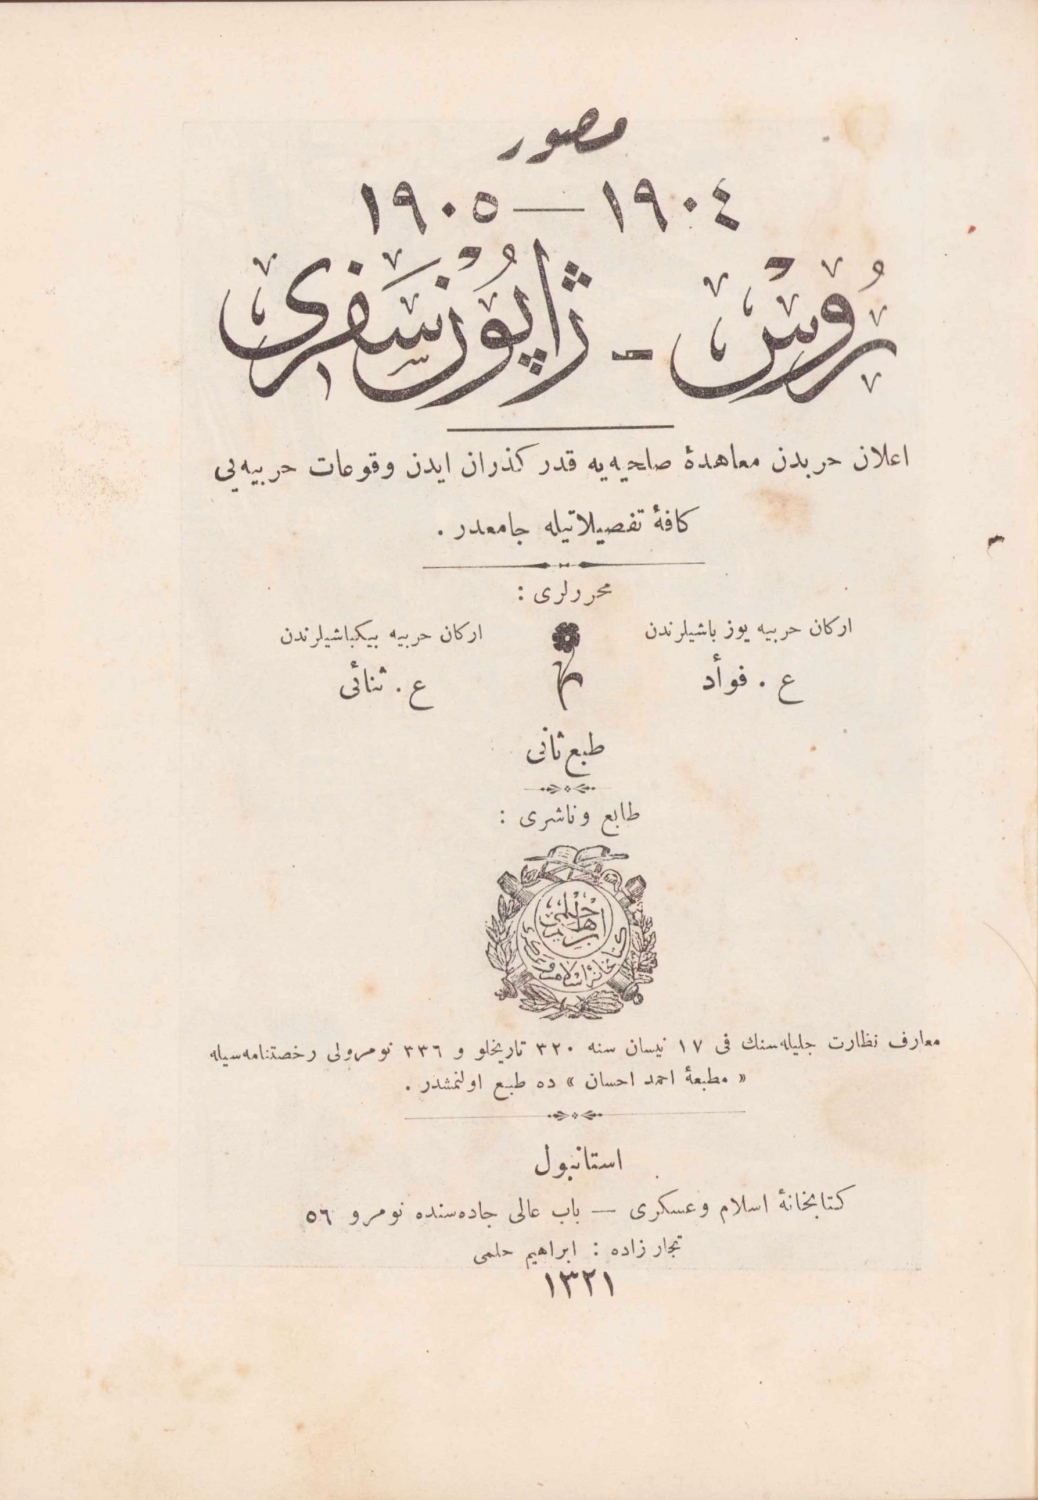 مصور
١٩٠٤ — ١٩٠٥
روس - ژاپون سفری
اعلان حربدن معاهدهٔ صلحیه‌یه قدر كذران ایدن وقوعات حربیه‌یی
كافهٔ تفصیلاتیله جامعدر .
محررلری :
اركان حربیه یوز باشیلرندن
ع . فوأد
اركان حربیه بیكباشیلرندن
ع . ثنائی
طبع ثانی
طابع و ناشری :
ابراهیم حلمی
كتابخانهٔ اسلام و عسكری
معارف نظارت جلیله‌سنك فی ١٧ نیسان سنه ٣٢٠ تاریخلو و ٣٣٦ نومرولی رخصتنامه‌سیله
« مطبعهٔ احمد احسان » ده طبع اولنمشدر .
استانبول
كتابخانهٔ اسلام و عسكری — باب عالی جاده‌سنده نومرو ٥٦
تجار زاده : ابراهیم حلمی
١٣٢١